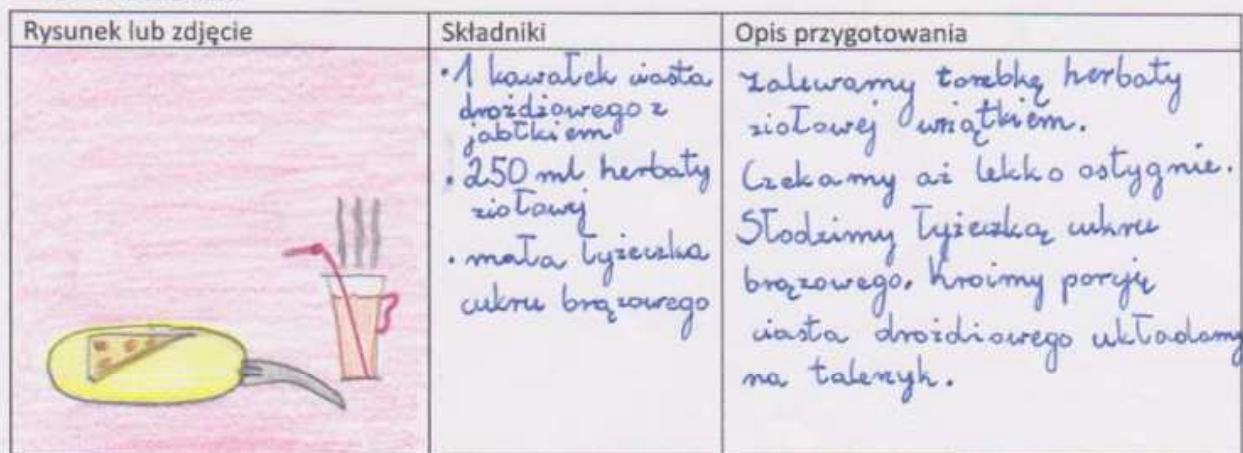 Rysunek lub zdjęcie
Składniki
Opis przygotowania
• 1 kawałek ciasta
drożdżowego z
jabłkiem
• 250 ml herbaty
ziołowej
• mała łyżeczka
cukru brązowego
Zalewamy torebkę herbaty
ziołowej wrzątkiem.
Czekamy aż lekko ostygnie.
Słodzimy łyżeczką cukru
brązowego. Kroimy porcję
ciasta drożdżowego układamy
na talerzyk.